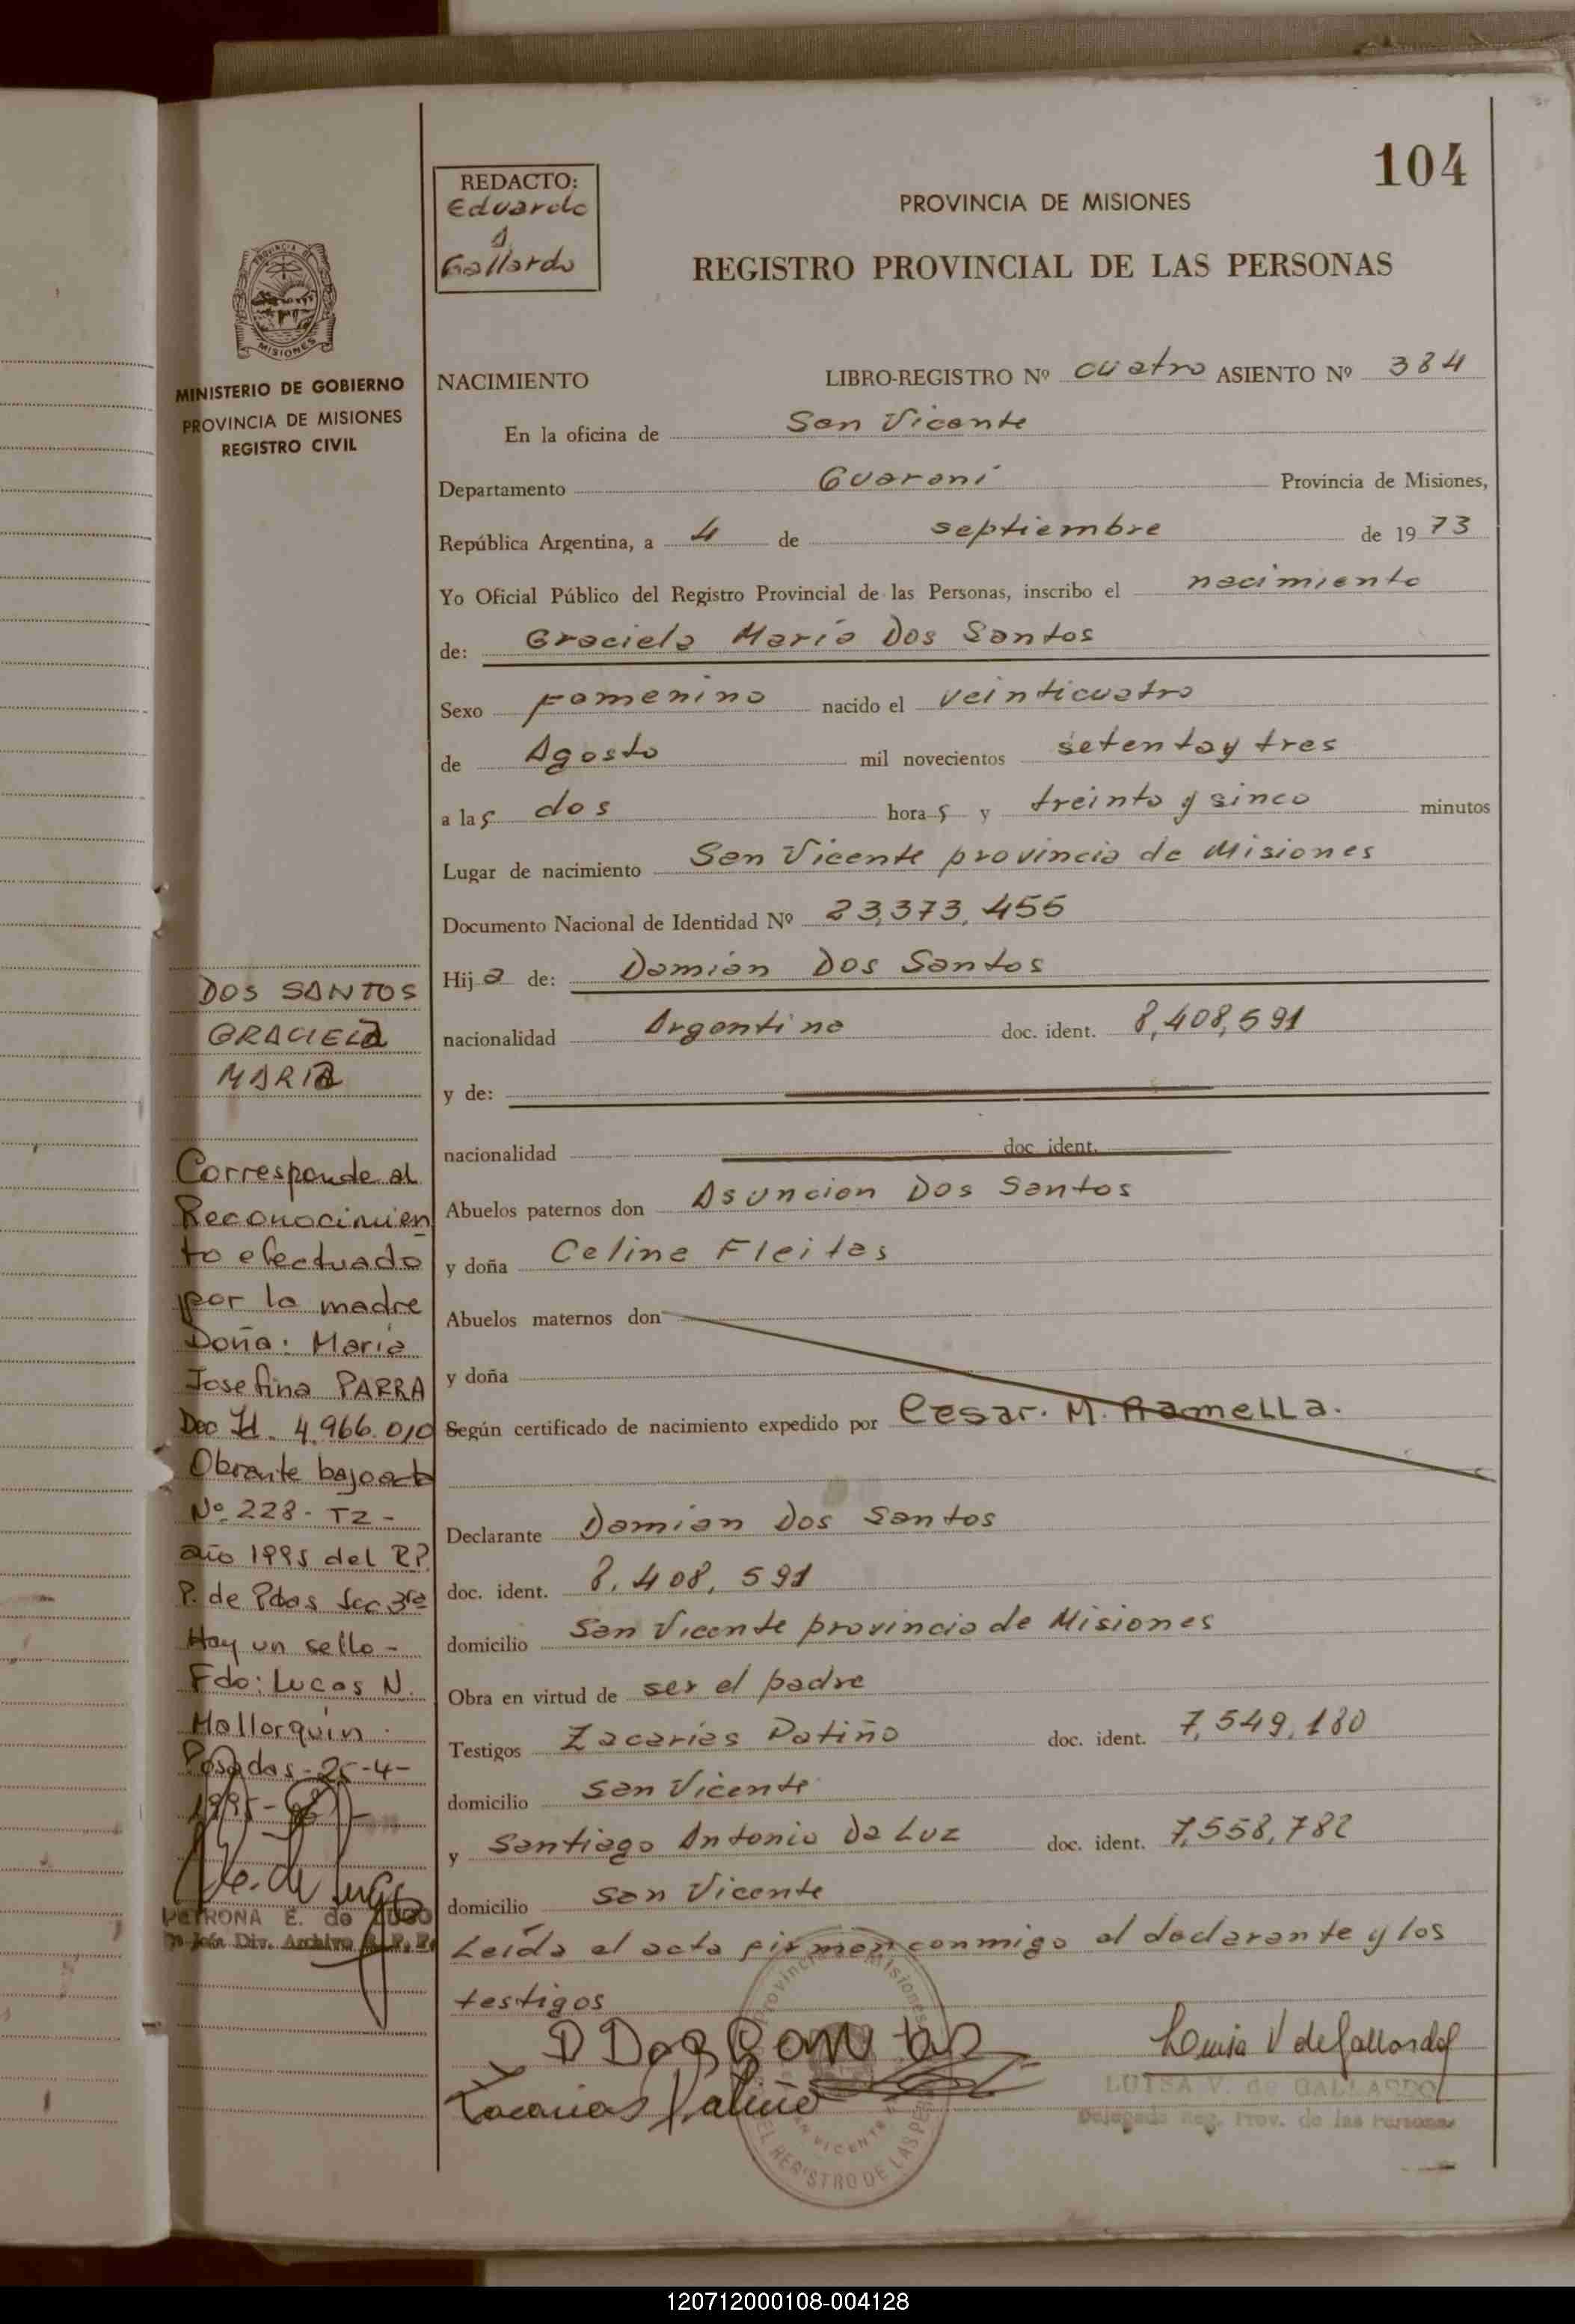 104
REDACTO:
Eduardo
A
Gallardo
PROVINCIA DE MISIONES
REGISTRO PROVINCIAL DE LAS PERSONAS
PROVINCIA DE
MISIONES
MINISTERIO DE GOBIERNO
PROVINCIA DE MISIONES
REGISTRO CIVIL
NACIMIENTO LIBRO-REGISTRO Nº cuatro ASIENTO Nº 384
En la oficina de San Vicente
Departamento Guarani Provincia de Misiones,
República Argentina, a 4 de septiembre de 1973
Yo Oficial Público del Registro Provincial de las Personas, inscribo el nacimiento
de: Graciela María Dos Santos
Sexo Femenino nacido el veinticuatro
de Agosto mil novecientos setenta y tres
a las dos horas y treinta y sinco minutos
Lugar de nacimiento San Vicente provincia de Misiones
Documento Nacional de Identidad Nº 23,373,455
Hija de: Damian Dos Santos
nacionalidad Argentina doc. ident. 8,408,591
y de:
nacionalidad doc. ident.
Abuelos paternos don Asuncion Dos Santos
y doña Celina Fleitas
Abuelos maternos don
y doña
Según certificado de nacimiento expedido por Cesar. M. Ramella.
Declarante Damian Dos Santos
doc. ident. 8,408,591
domicilio San Vicente provincia de Misiones
Obra en virtud de ser el padre
Testigos Zacarías Patiño doc. ident. 7,549,180
domicilio San Vicente
y Santiago Antonio Da Luz doc. ident. 7,558,782
domicilio San Vicente
Leída el acta firman conmigo el declarante y los
testigos
D Dos Santos
Zacarias Patiño
Luisa V de Gallardo
LUISA V. de GALLARDO
Delegada Reg. Prov. de las Personas
Provincia Misiones
SAN VICENTE
DEL REGISTRO DE LAS PER
DOS SANTOS
GRACIELA
MARIA
Corresponde al
Reconocimien
to efectuado
por la madre
Doña: María
Josefina PARRA
Doc Id. 4.966.010
Obrante bajo acta
Nº 228- T2-
año 1995 del R.P.
P. de Pdas Sec 3ra
Hay un sello-
Fdo: Lucas N.
Mallorquín.
Posadas-25-4-
1995-
PETRONA E. de LUGO
Jefa Div. Archivo R. P. P.
120712000108-004128